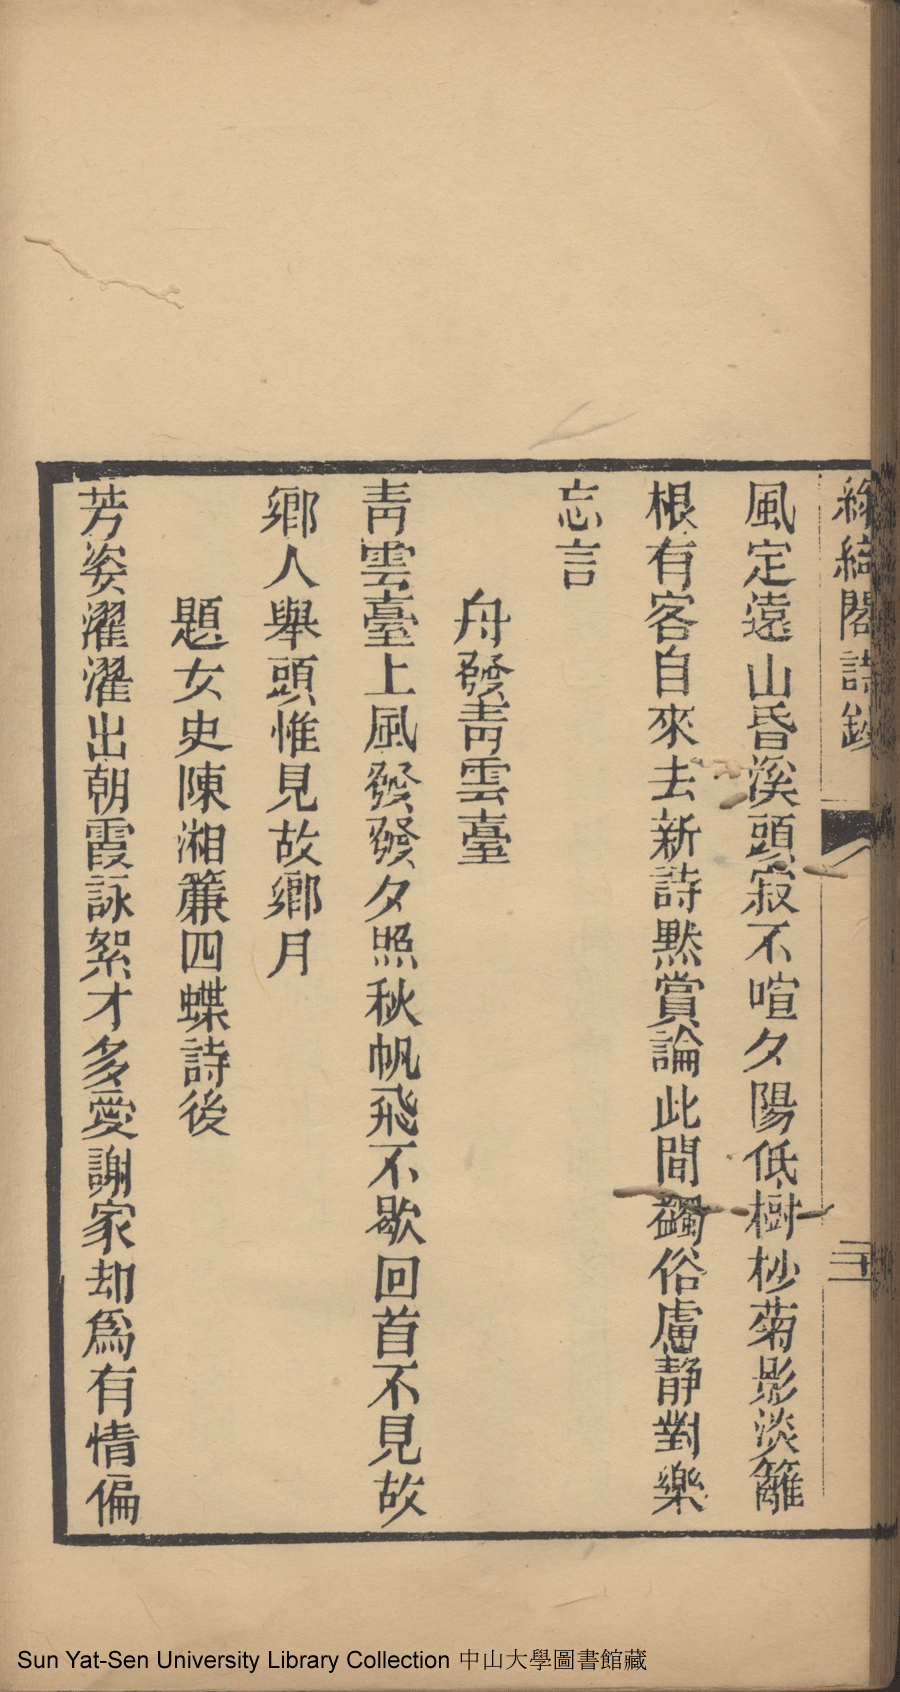 閣詩鈔
風定遠山昏溪頭寂不喧夕陽低樹杪菊影淡籬
根有客自來去新詩默賞論此間蠲俗慮靜對樂
忘言
舟發青雲臺
青雲臺上風發發夕照秋帆飛不歇回首不見故
鄉人舉頭惟見故鄉月
題女史陳湘簾四蝶詩後
芳姿濯濯出朝霞詠絮才多愛謝家却爲有情偏
Sun Yat-Sen University Library Collection 中山大學圖書館藏